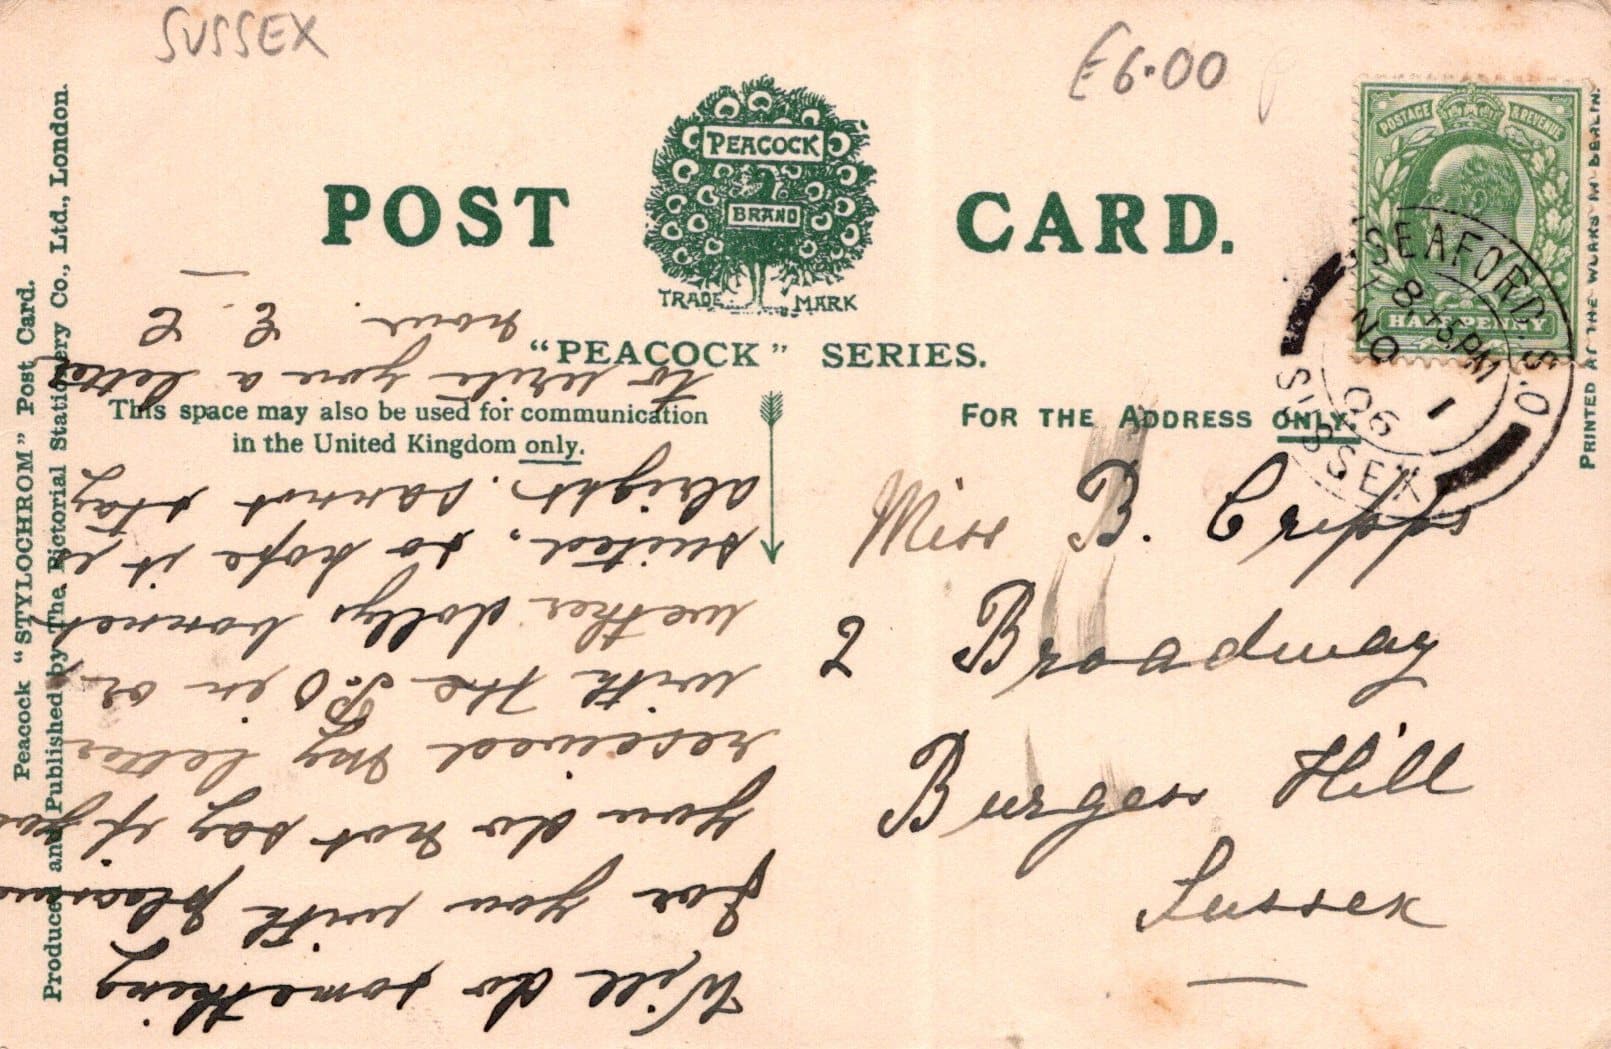 SUSSEX
£6.00
POST CARD.
PEACOCK
BRAND
TRADE MARK
"PEACOCK" SERIES.
This space may also be used for communication
in the United Kingdom only.
FOR THE ADDRESS ONLY.
POSTAGE & REVENUE
HALFPENNY
SEAFORD. S.O
8.45PM
NO 1
06
SUSSEX
Miss B. Cripps
2 Broadway
Burgess Hill
Sussex
Will do something
for you with pleasure
you do not say if you
received my letter
with the P.O in or
wether dollys bonnet
suited, so hope it is
alright. Cannot stay
to write you a letter
now. E. C
Peacock "STYLOCHROM" Post Card.
Produced and Published by The Pictorial Stationery Co., Ltd., London.
PRINTED AT THE WORKS IN BERLIN.